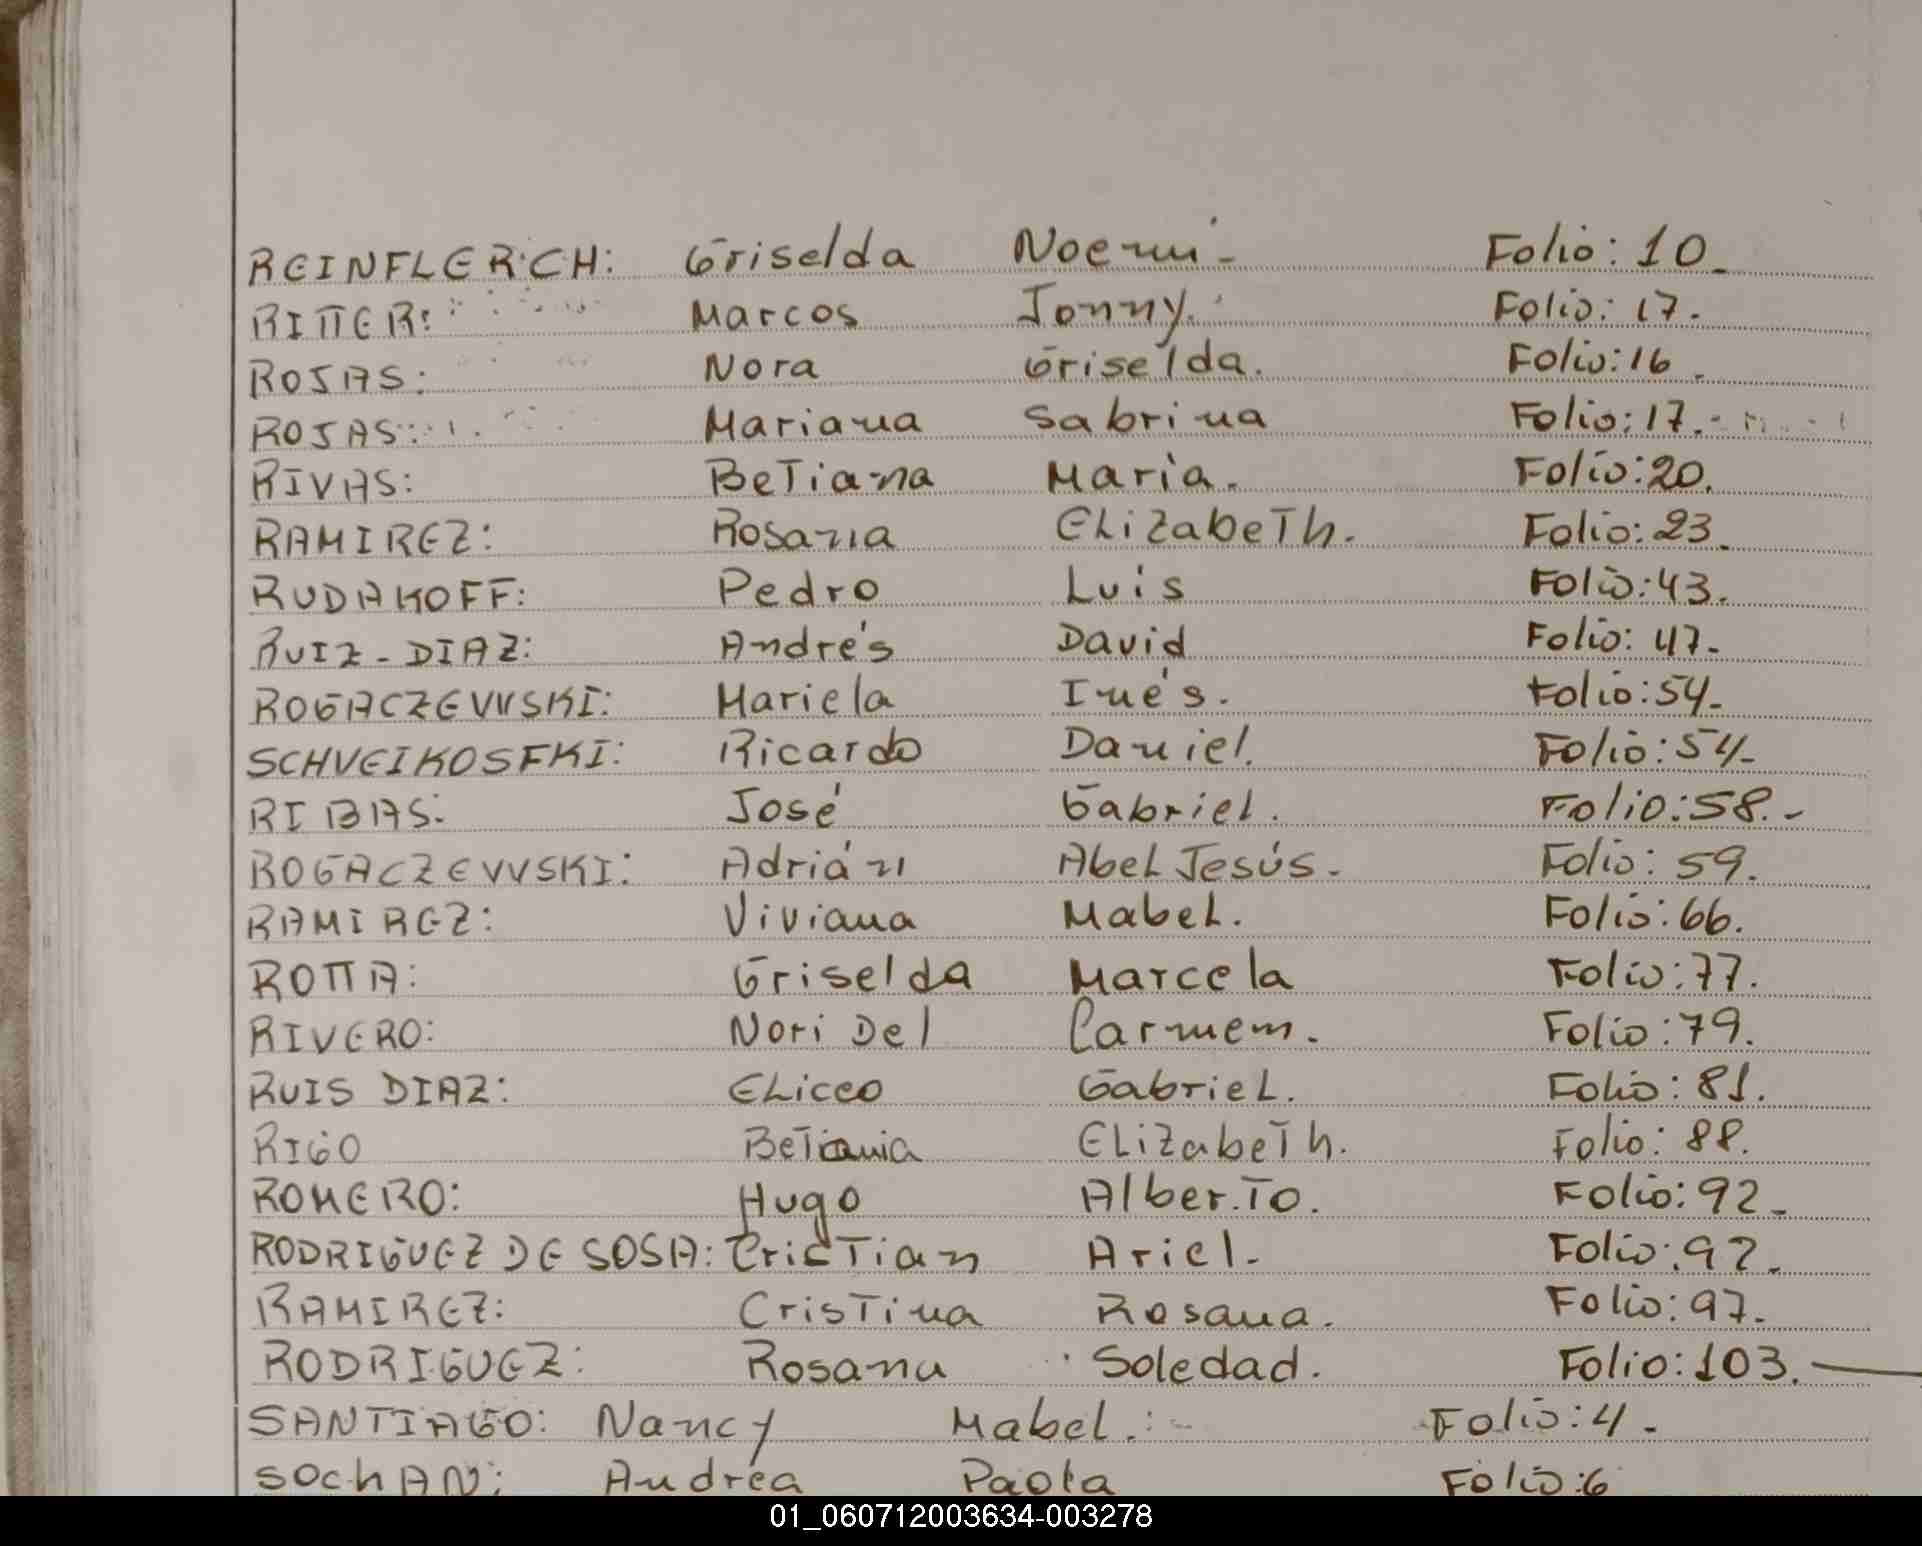 REINFLERICH: Griselda Noemi- Folio: 10_
RITTER: Marcos Jonny. Folio: 17.
ROJAS: Nora Griselda. Folio: 16.
ROJAS: Mariana Sabrina Folio: 17.-
RIVAS: BeTiana Maria. Folio: 20.
RAMIREZ: Rosana ELizabeTh. Folio: 23_
RUDAKOFF: Pedro Luis Folio: 43.
RUIZ-DIAZ: Andrés David Folio: 47-
ROGACZEWSKI: Mariela Inés. Folio: 54_
SCHVEIKOSFKI: Ricardo Daniel. Folio: 54_
RIBAS: José Gabriel. Folio: 58.-
ROGACZEWSKI: Adrián AbeL Jesús. Folio: 59.
RAMIREZ: Viviana MabeL. Folio: 66.
ROTTA: Griselda Marcela Folio: 77.
RIVERO: Nori Del Carmem. Folio: 79.
RUIS DIAZ: ELiceo GabrieL. Folio: 81.
RIGO BeTiania ELizabeTh. Folio: 88.
ROMERO: Hugo AlberTo. Folio: 92_
RODRIGUEZ DE SOSA: CrisTian Ariel. Folio: 92_
RAMIREZ: CrisTina Rosana. Folio: 97.
RODRIGUEZ: Rosana Soledad. Folio: 103.
SANTIAGO: Nancy Mabel. Folio: 4-
SOchAN: Andrea Paola Folio: 6
01_060712003634-003278